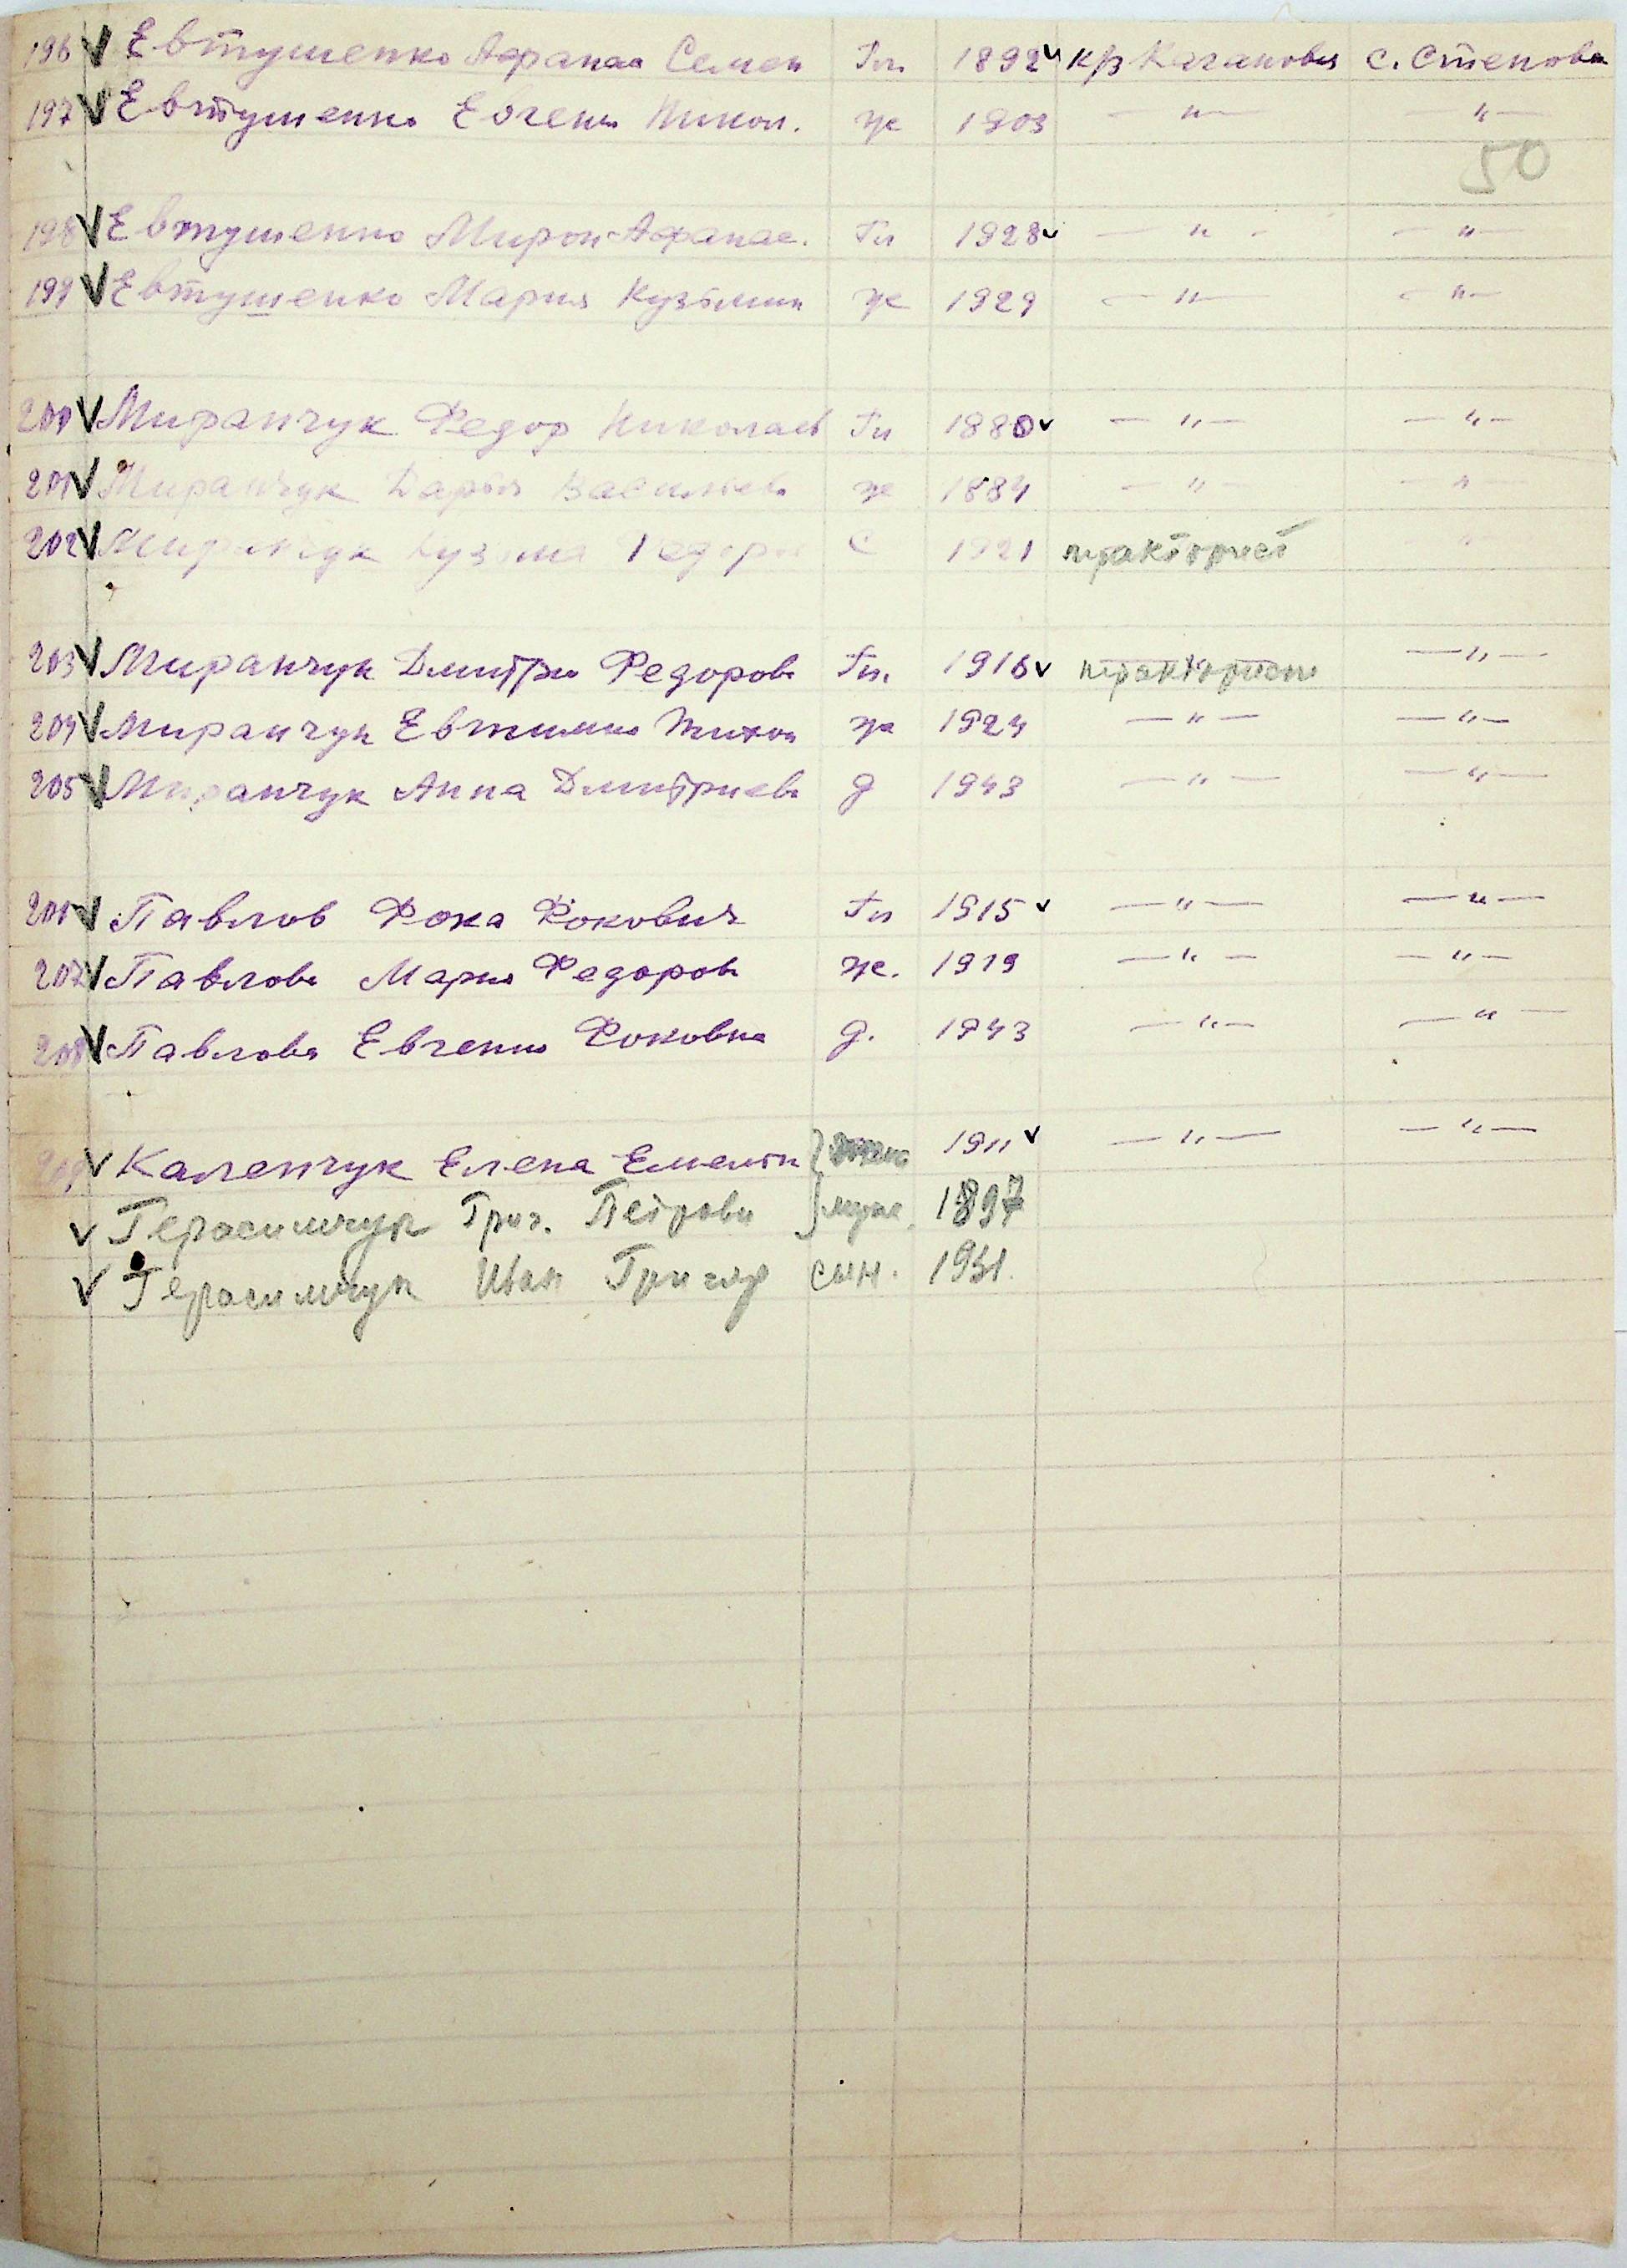 196 V Евтушенко Афанас Семен Гл. 1892 v к/з Кагановия с. Степовка
197 V Евтушенко Евгения Никол. ж 1903 — " — — " —
50
198 V Евтушенко Мирон Афанас. Гл 1928 v — " — — " —
199 V Евтушенко Мария Кузьмин ж 1929 — " — — " —
200 V Миранчук Федор Николаев Гл 1880 v — " — — " —
201 V Миранчук Дарья Васильев ж 1884 — " — — " —
202 V Миранчук Кузьма Федоро С 1921 тракторист — " —
203 V Миранчук Дмитри Федорови Гл. 1916 v тракторист — " —
204 V Миранчук Евтимия Тихон ж 1924 — " — — " —
205 V Миранчук Анна Дмитриев д 1943 — " — — " —
206 V Павлов Фока Фокович Гл 1915 v — " — — " —
207 V Павлова Мария Федоров ж. 1919 — " — — " —
208 V Павлова Евгения Фоковна д. 1943 — " — — " —
209 V Каленчук Елена Емельян 1911 v — " — — " —
V Герасимчук Григ. Петрови муж. 1897
V Герасимчук Иван Григор сын. 1931.